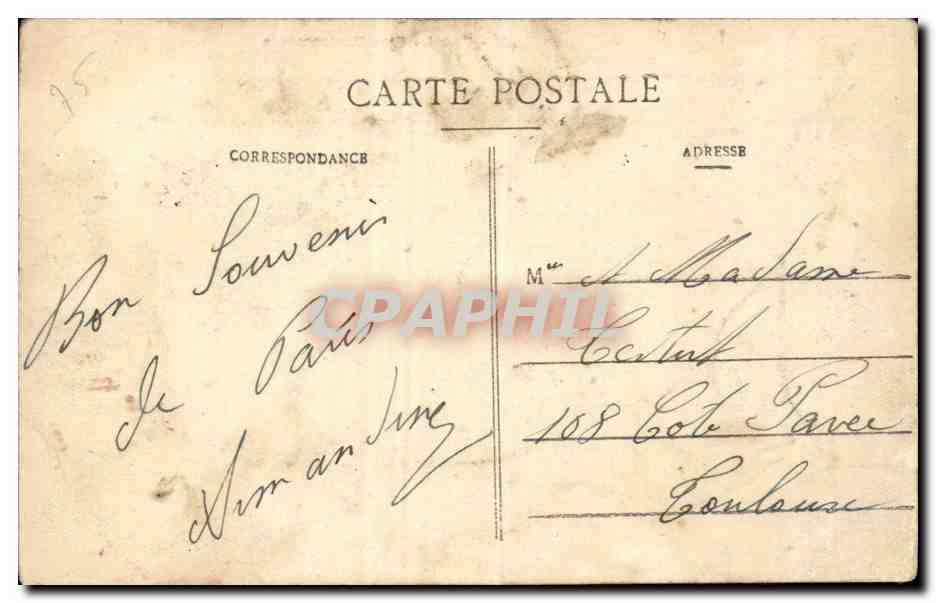 75
CARTE POSTALE
CORRESPONDANCE
ADRESSE
Bon Souvenir
de Paris
M et Madame
108 Cote Pavee
Toulouse
CPAPHIL